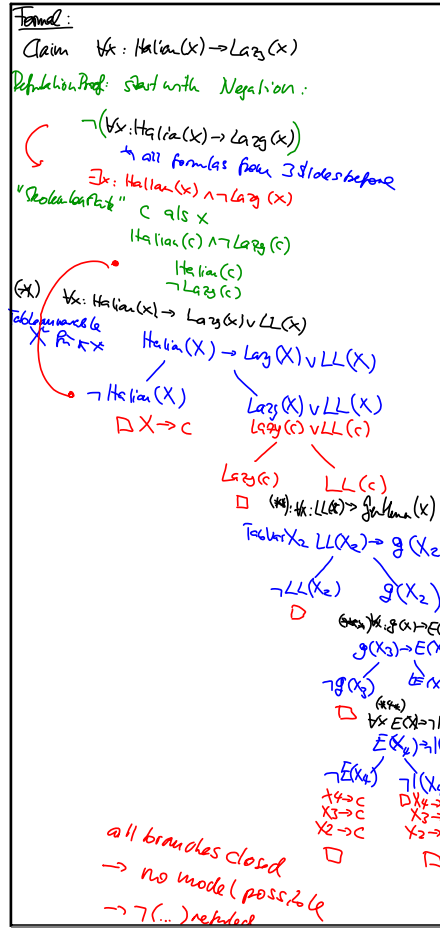 Formal:
Claim ∀x: Italian(x) → Lazy(x)
Refutation Proof: start with Negation:
¬(∀x: Italian(x) → Lazy(x))
↳ all formulas from 3 slides before
∃x: Italian(x) ∧ ¬Lazy(x)
c als x
Italian(c) ∧ ¬Lazy(c)
Italian(c)
¬Lazy(c)
(*) ∀x: Italian(x) → Lazy(x) ∨ LL(x)
X für x
Italian(X) → Lazy(X) ∨ LL(X)
¬Italian(X) Lazy(X) ∨ LL(X)
□ X → c Lazy(c) ∨ LL(c)
Lazy(c) LL(c)
□ (**): ∀x: LL(x) → (x)
X2 LL(X2) → g(X2
¬LL(X2) g(X2)
□ ∀x: g(x) → E(
g(X3) → E(X
¬g(X3) E(X
□ ∀x E(x) → ¬I(
E(X4) → ¬I(
¬E(X4) ¬I(X4
X4 → c □ X4 →
X3 → c X3 →
X2 → c X2 →
□ □
all branches closed
→ no model possible
→ ¬(...) refuted